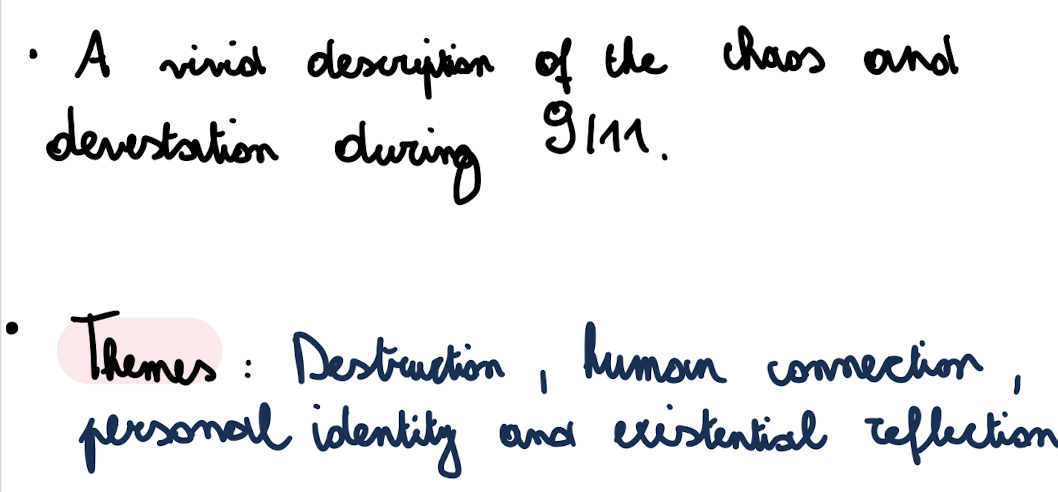 • A vivid description of the chaos and
devestation during 9/11.
• Themes: Destruction, human connection,
personal identity and existential reflection